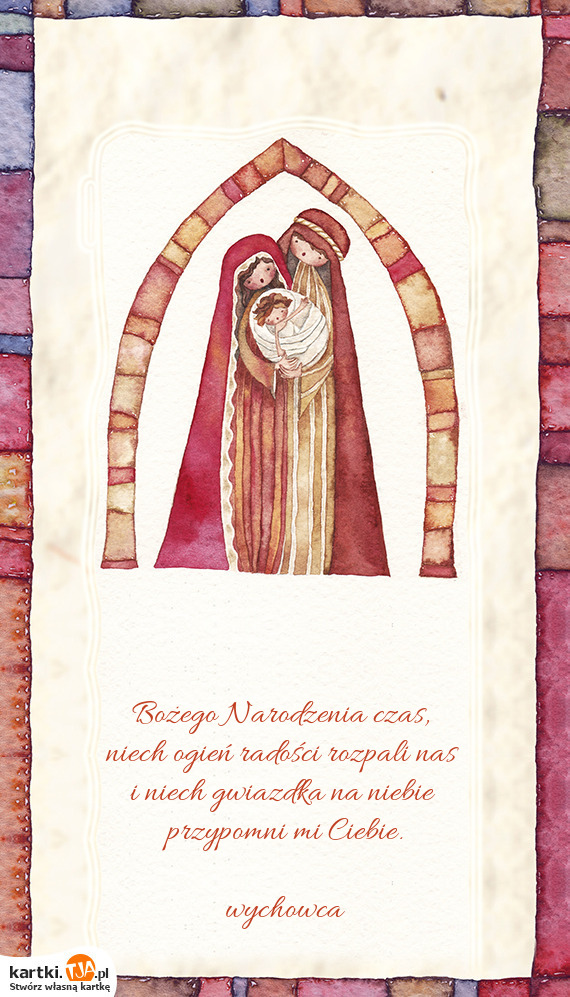 Bożego Narodzenia czas,
niech ogień radości rozpali nas
i niech gwiazdka na niebie
przypomni mi Ciebie.
wychowca
kartki.TJA.pl
Stwórz własną kartkę